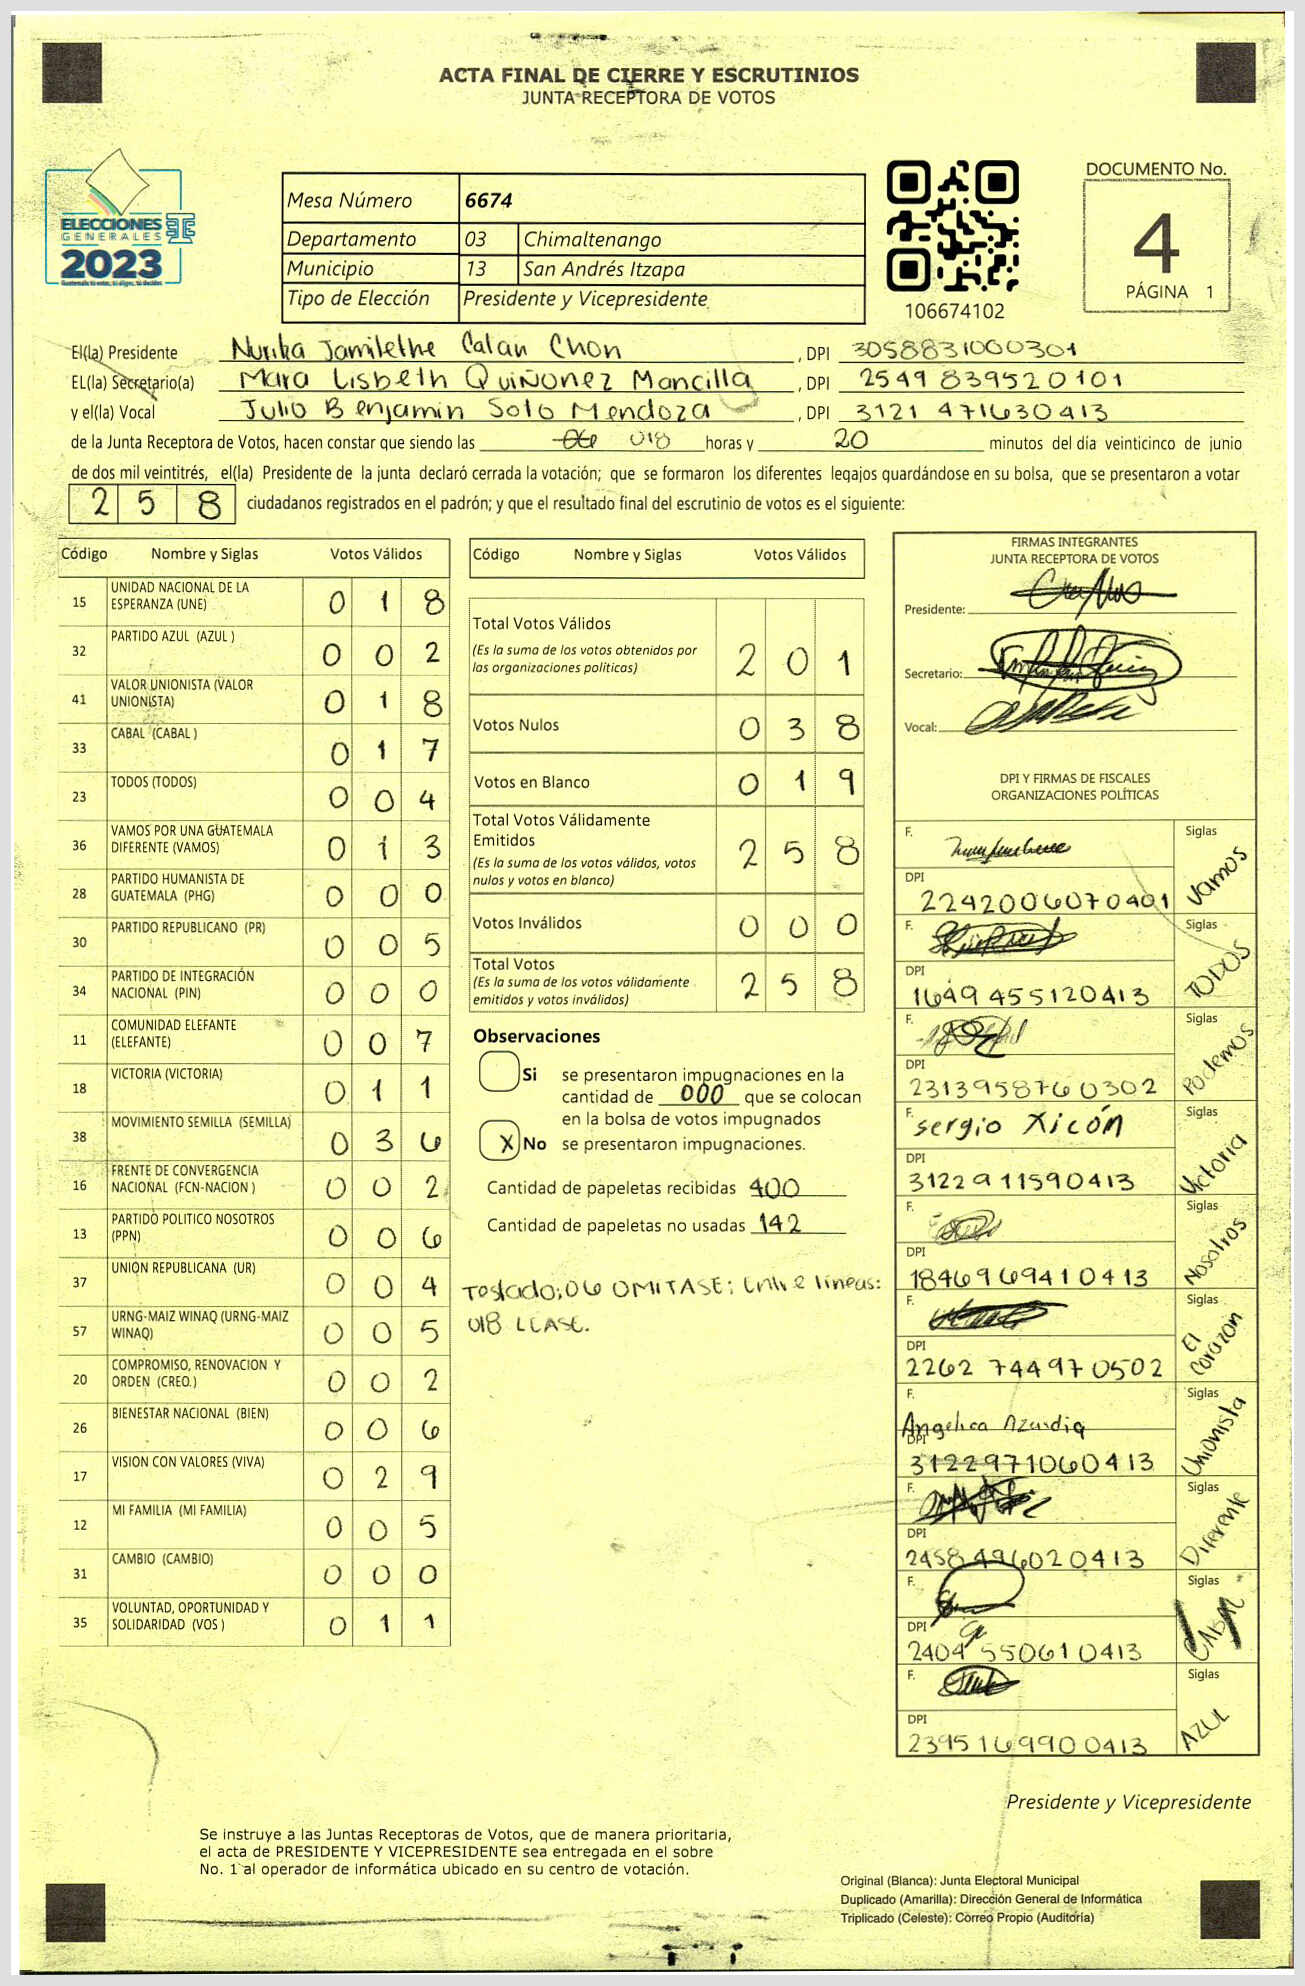 ACTA FINAL DE CIERRE Y ESCRUTINIOS
JUNTA RECEPTORA DE VOTOS
ELECCIONES
GENERALES
2023
Mesa Número 6674
Departamento 03 Chimaltenango
Municipio 13 San Andrés Itzapa
Tipo de Elección Presidente y Vicepresidente
106674102
DOCUMENTO No.
4
PÁGINA 1
El(la) Presidente Nurika Jamilethe Calan Chon, DPI 3058831000301
EL(la) Secretario(a) Mara Lisbeth Quiñonez Mancilla, DPI 2549 839520101
y el(la) Vocal Julio Benjamin Soto Mendoza, DPI 3121 471630413
de la Junta Receptora de Votos, hacen constar que siendo las 06 018 horas y 20 minutos del día veinticinco de junio
de dos mil veintitrés, el(la) Presidente de la junta declaró cerrada la votación; que se formaron los diferentes legajos guardándose en su bolsa, que se presentaron a votar
2 5 8 ciudadanos registrados en el padrón; y que el resultado final del escrutinio de votos es el siguiente:
Código Nombre y Siglas Votos Válidos
15 UNIDAD NACIONAL DE LA ESPERANZA (UNE) 0 1 8
32 PARTIDO AZUL (AZUL ) 0 0 2
41 VALOR UNIONISTA (VALOR UNIONISTA) 0 1 8
33 CABAL (CABAL ) 0 1 7
23 TODOS (TODOS) 0 0 4
36 VAMOS POR UNA GUATEMALA DIFERENTE (VAMOS) 0 1 3
28 PARTIDO HUMANISTA DE GUATEMALA (PHG) 0 0 0
30 PARTIDO REPUBLICANO (PR) 0 0 5
34 PARTIDO DE INTEGRACIÓN NACIONAL (PIN) 0 0 0
11 COMUNIDAD ELEFANTE (ELEFANTE) 0 0 7
18 VICTORIA (VICTORIA) 0 1 1
38 MOVIMIENTO SEMILLA (SEMILLA) 0 3 6
16 FRENTE DE CONVERGENCIA NACIONAL (FCN-NACION ) 0 0 2
13 PARTIDO POLITICO NOSOTROS (PPN) 0 0 6
37 UNION REPUBLICANA (UR) 0 0 4
57 URNG-MAIZ WINAQ (URNG-MAIZ WINAQ) 0 0 5
20 COMPROMISO, RENOVACION Y ORDEN (CREO.) 0 0 2
26 BIENESTAR NACIONAL (BIEN) 0 0 6
17 VISION CON VALORES (VIVA) 0 2 9
12 MI FAMILIA (MI FAMILIA) 0 0 5
31 CAMBIO (CAMBIO) 0 0 0
35 VOLUNTAD, OPORTUNIDAD Y SOLIDARIDAD (VOS ) 0 1 1
Código Nombre y Siglas Votos Válidos
Total Votos Válidos 2 0 1
(Es la suma de los votos obtenidos por
las organizaciones políticas)
Votos Nulos 0 3 8
Votos en Blanco 0 1 9
Total Votos Válidamente
Emitidos 2 5 8
(Es la suma de los votos válidos, votos
nulos y votos en blanco)
Votos Inválidos 0 0 0
Total Votos 2 5 8
(Es la suma de los votos válidamente
emitidos y votos inválidos)
Observaciones
Si se presentaron impugnaciones en la
cantidad de 000 que se colocan
en la bolsa de votos impugnados
X No se presentaron impugnaciones.
Cantidad de papeletas recibidas 400
Cantidad de papeletas no usadas 142
Testado: 06 OMITASE; Entre lineas:
018 LEASE.
FIRMAS INTEGRANTES
JUNTA RECEPTORA DE VOTOS
Presidente:
Secretario:
Vocal:
DPI Y FIRMAS DE FISCALES
ORGANIZACIONES POLÍTICAS
F. Siglas Vamos
DPI 2242006070401
F. Siglas TODOS
DPI 1649 455120413
F. Siglas Podemos
DPI 2313958760302
F. sergio Xicón Siglas Victoria
DPI 3122911590413
F. Siglas Nosotros
DPI 1846969410413
F. Siglas El corazon
DPI 2262 744970502
F. Angelica Azurdia Siglas Unionista
DPI 3122971060413
F. Siglas Diferente
DPI 2458496020413
F. Siglas CABAL
DPI 2404 550610413
F. Siglas AZUL
DPI 2395169900413
Presidente y Vicepresidente
Se instruye a las Juntas Receptoras de Votos, que de manera prioritaria,
el acta de PRESIDENTE Y VICEPRESIDENTE sea entregada en el sobre
No. 1 al operador de informática ubicado en su centro de votación.
Original (Blanca): Junta Electoral Municipal
Duplicado (Amarilla): Dirección General de Informática
Triplicado (Celeste): Correo Propio (Auditoría)